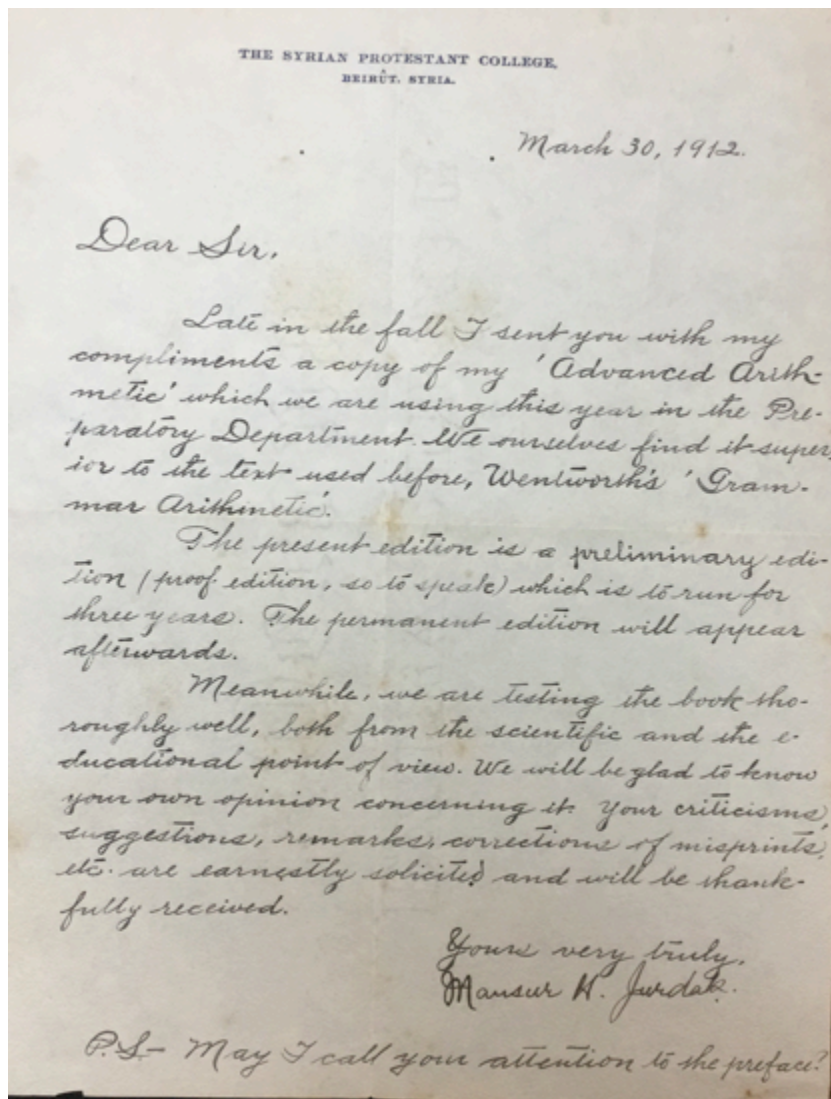 THE SYRIAN PROTESTANT COLLEGE,
BEIRÛT. SYRIA.
March 30, 1912.
Dear Sir,
Late in the fall I sent you with my
compliments a copy of my 'Advanced Arith-
metic' which we are using this year in the Pre-
paratory Department. We ourselves find it super-
ior to the text used before, Wentworth's 'Gram-
mar Arithmetic'.
The present edition is a preliminary edi-
tion (proof edition, so to speak) which is to run for
three years. The permanent edition will appear
afterwards.
Meanwhile, we are testing the book tho-
roughly well, both from the scientific and the e-
ducational point of view. We will be glad to know
your own opinion concerning it. Your criticisms,
suggestions, remarks, corrections of misprints,
etc. are earnestly solicited and will be thank-
fully received.
Yours very truly,
Mansur H. Jurdak.
P.S— May I call your attention to the preface?